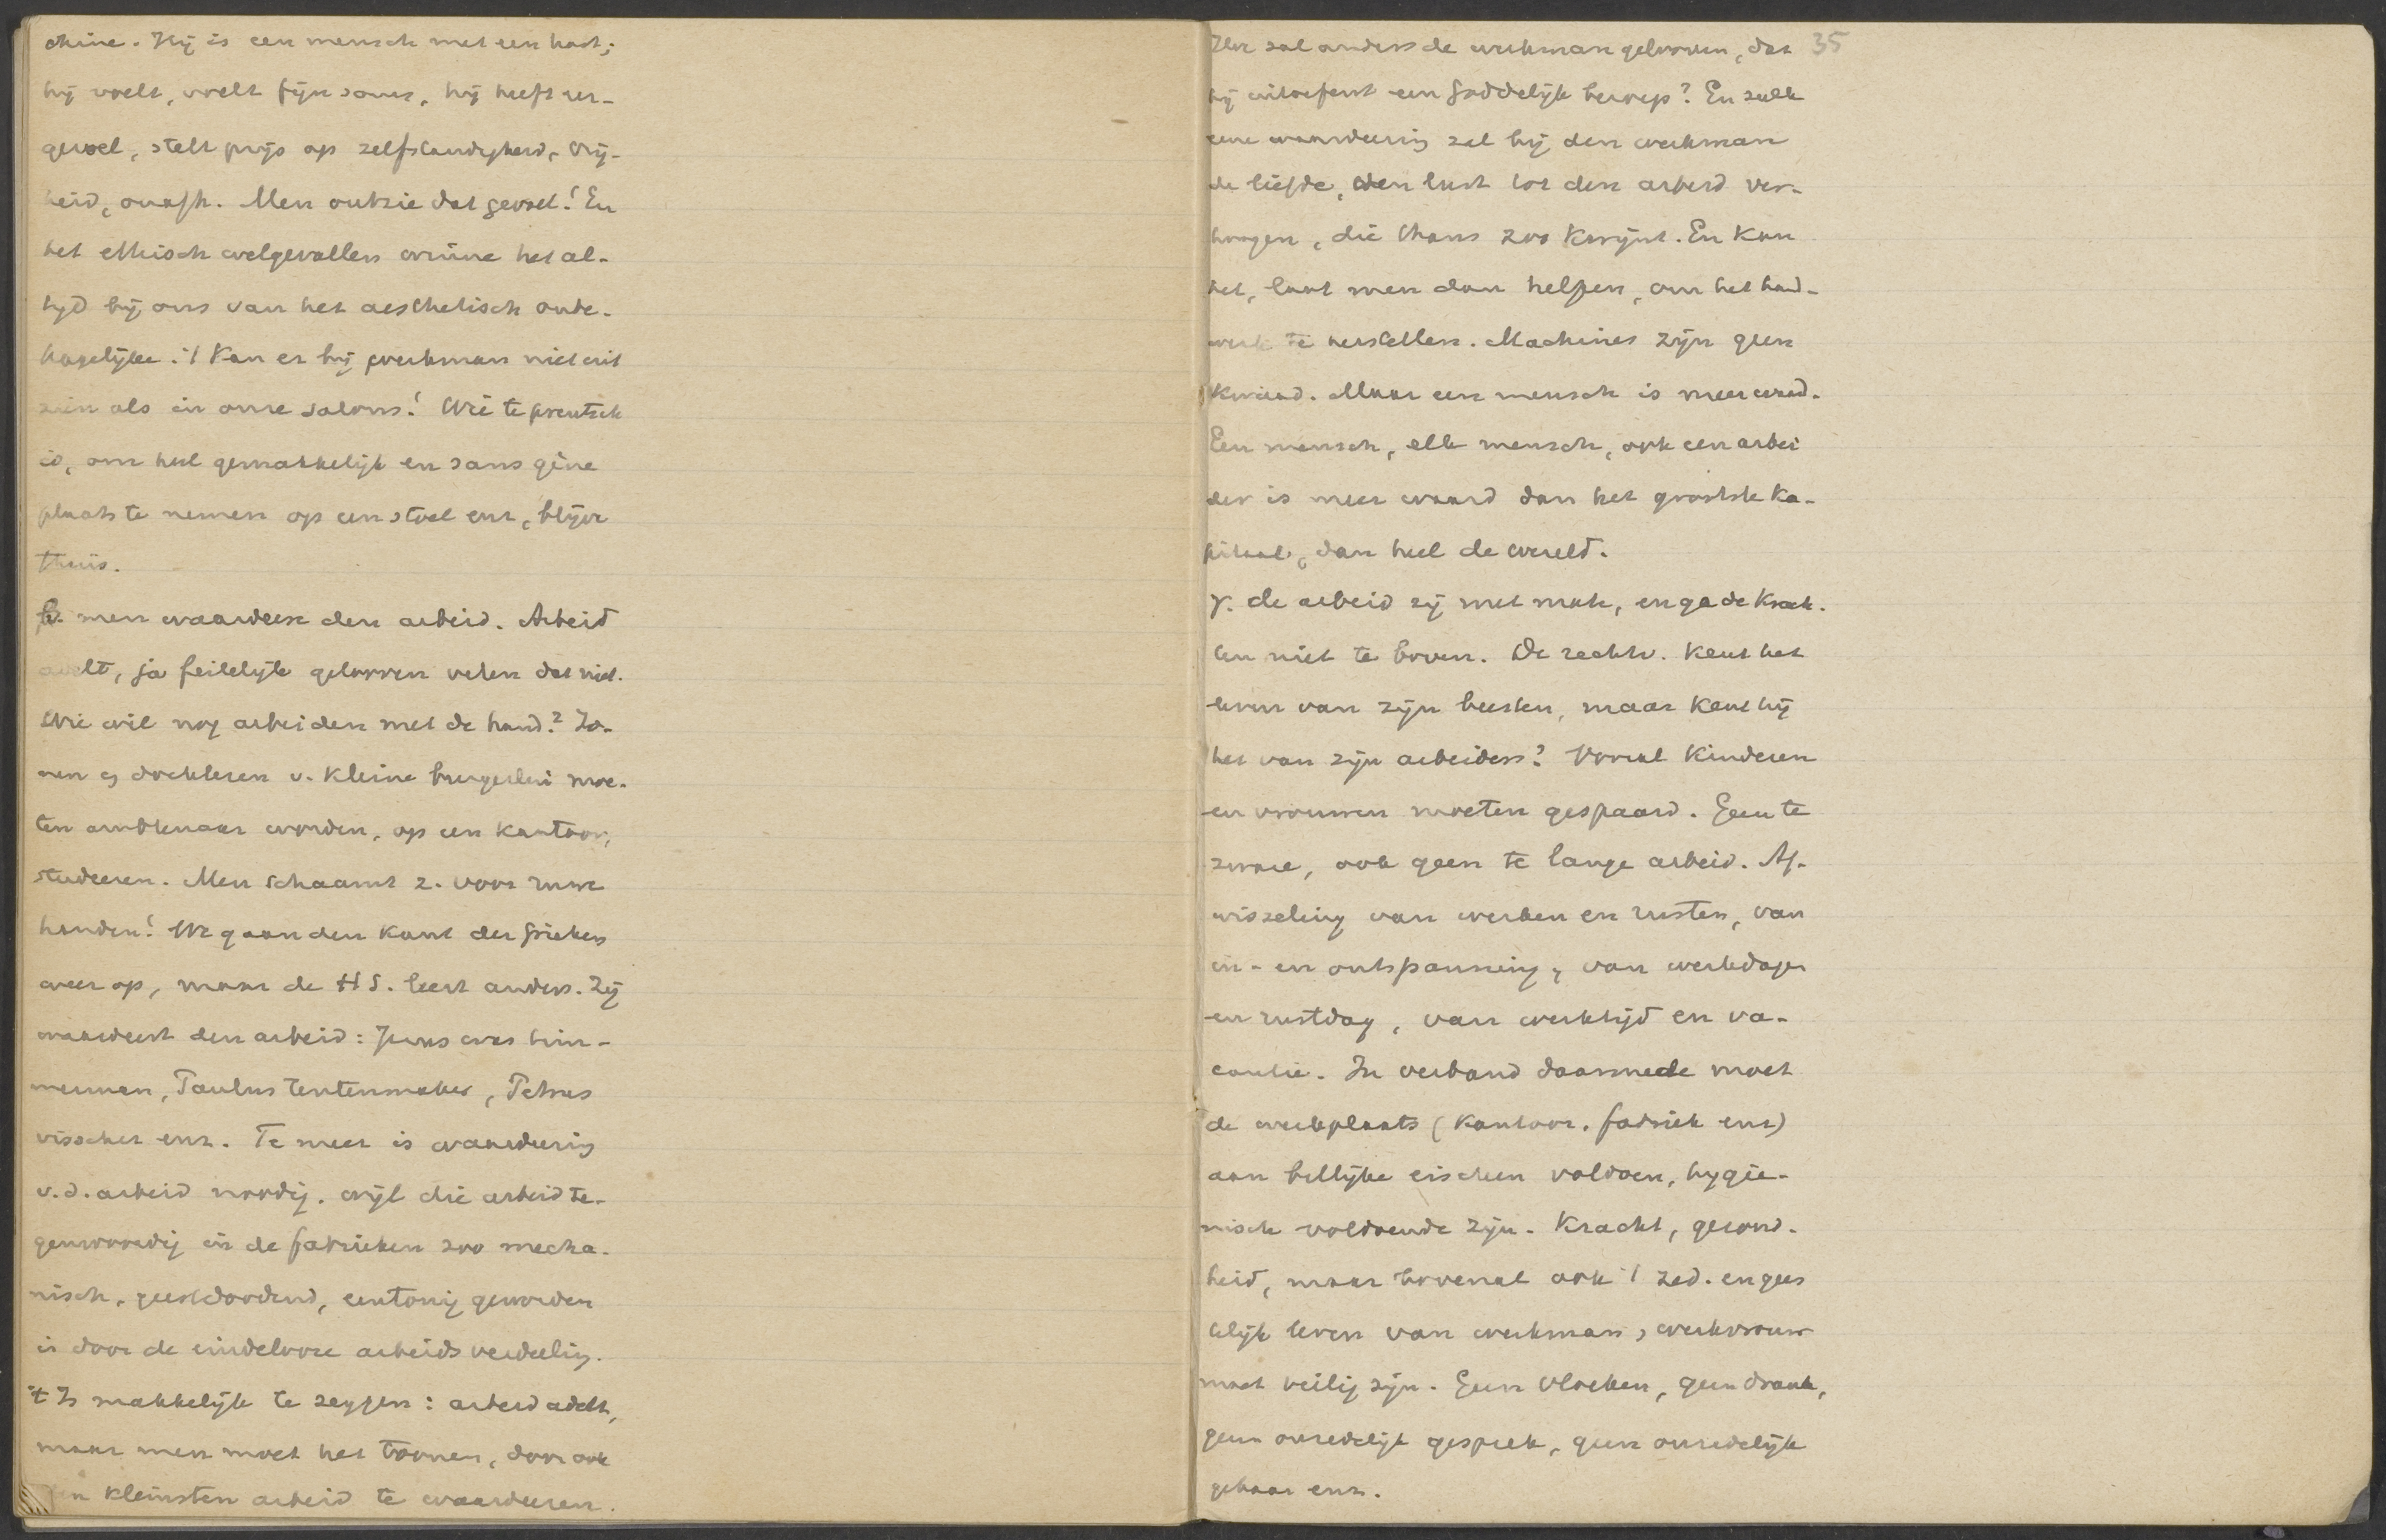 chine. Hij is een mensch met een hart;
hij voelt, voelt fijn soms, hij heeft eer-
gevoel, stelt prijs op zelfstandigheid, vrij-
heid, onafh. Men ontzie dat gevoel! En
het ethisch welgevallen winne het al-
tijd bij ons van het aesthetisch onbe-
hagelijke. 't Kan er bij werkman niet uit
zien als in onze salons! Wie te preutsch
is, om heel gemakkelijk en sans gêne
plaats te nemen op een stoel enz, blijve
thuis.
β. men waardeere den arbeid. Arbeid
adelt, ja feitelijk gelooven velen dat niet.
Wie wil nog arbeiden met de hand? Zo-
nen en dochteren v. kleine burgerlui moe-
ten ambtenaar worden, op een kantoor,
studeeren. Men schaamt z. voor ruwe
handen! We gaan den kant der Grieken
weer op, maar de H S. leert anders. Zij
waardeert den arbeid: Jezus was tim-
merman, Paulus tentenmaker, Petrus
visscher enz. Te meer is waardeering
v. d. arbeid noodig, wijl die arbeid te-
genwoordig in de fabrieken zoo mecha-
nisch, geestdoodend, eentonig geworden
is door de eindelooze arbeidsverdeeling.
't Is makkelijk te zeggen: arbeid adelt,
maar men moet het toonen, door ook
den kleinsten arbeid te waardeeren.
35
Hoe zal anders de werkman gelooven, dat
hij uitoefent een Goddelijk beroep? En zulk
eene waardeering zal bij den werkman
de liefde, den lust tot den arbeid ver-
hoogen, die thans zoo kwijnt. En kan
het, laat men dan helpen, om het hand-
werk te herstellen. Machines zijn geen
kwaad. Maar een mensch is meer waard.
Een mensch, elk mensch, ook een arbei
der is meer waard dan het grootste ka-
pitaal, dan heel de wereld.
γ. de arbeid zij met mate, en ga de krach-
ten niet te boven. De rechtv. kent het
leven van zijn beesten, maar kent hij
het van zijn arbeiders? Vooral kinderen
en vrouwen moeten gespaard. Geen te
zware, ook geen te lange arbeid. Af-
wisseling van werken en rusten, van
in- en ontspanning, van werkdagen
en rustdag, van werktijd en va-
cantie. In verband daarmede moet
de werkplaats (kantoor, fabriek enz)
aan billijke eischen voldoen, hygië-
nisch voldoende zijn. Kracht, gezond-
heid, maar bovenal ook 't zed. en gees
telijk leven van werkman, werkvrouw
moet veilig zijn. Geen vloeken, geen drank,
geen onzedelijk gesprek, geen onzedelijk
gebaar enz.